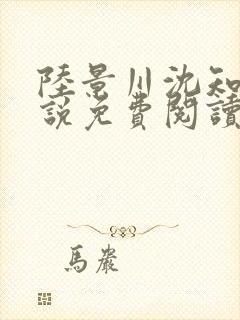 陸景川沈知
說免費閱讀
馬嚴